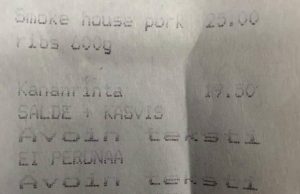 Smoke house pork 25.00
ribs 600g
Kananrinta 19.50
SALDE + KASVIS
Avoin teksti
EI PERUNAA
Avoin teksti